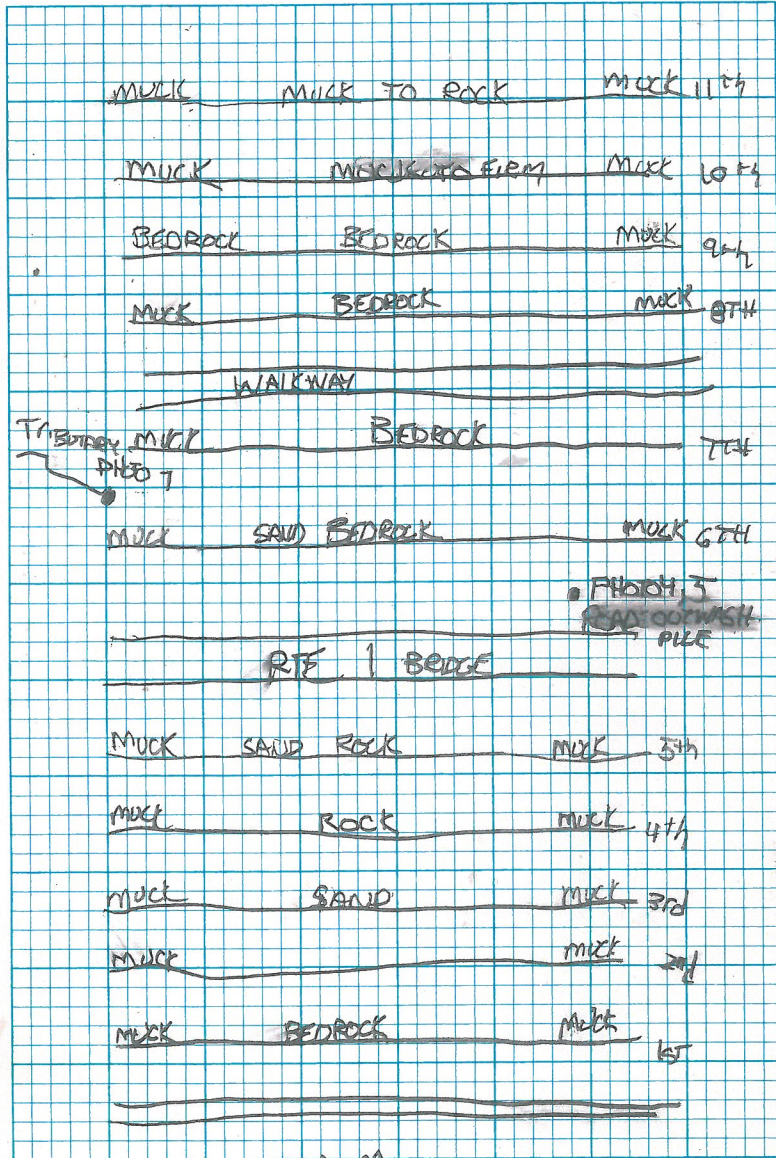 MUCK MUCK TO ROCK MUCK 11th
MUCK TO FIRM MUCK 10th
BEDROCK BEDROCK MUCK 9th
MUCK BEDROCK MUCK 8TH
WALKWAY
TRIBUTARY MUCK BEDROCK 7TH
PHOTO 7
MUCK SAND BEDROCK MUCK 6TH
PHOTO 4, 5
ROAD OUTWASH
PILE
RTE 1 BRIDGE
MUCK SAND ROCK MUCK 5th
MUCK ROCK MUCK 4th
MUCK SAND MUCK 3rd
MUCK MUCK 2nd
MUCK BEDROCK MUCK 1ST